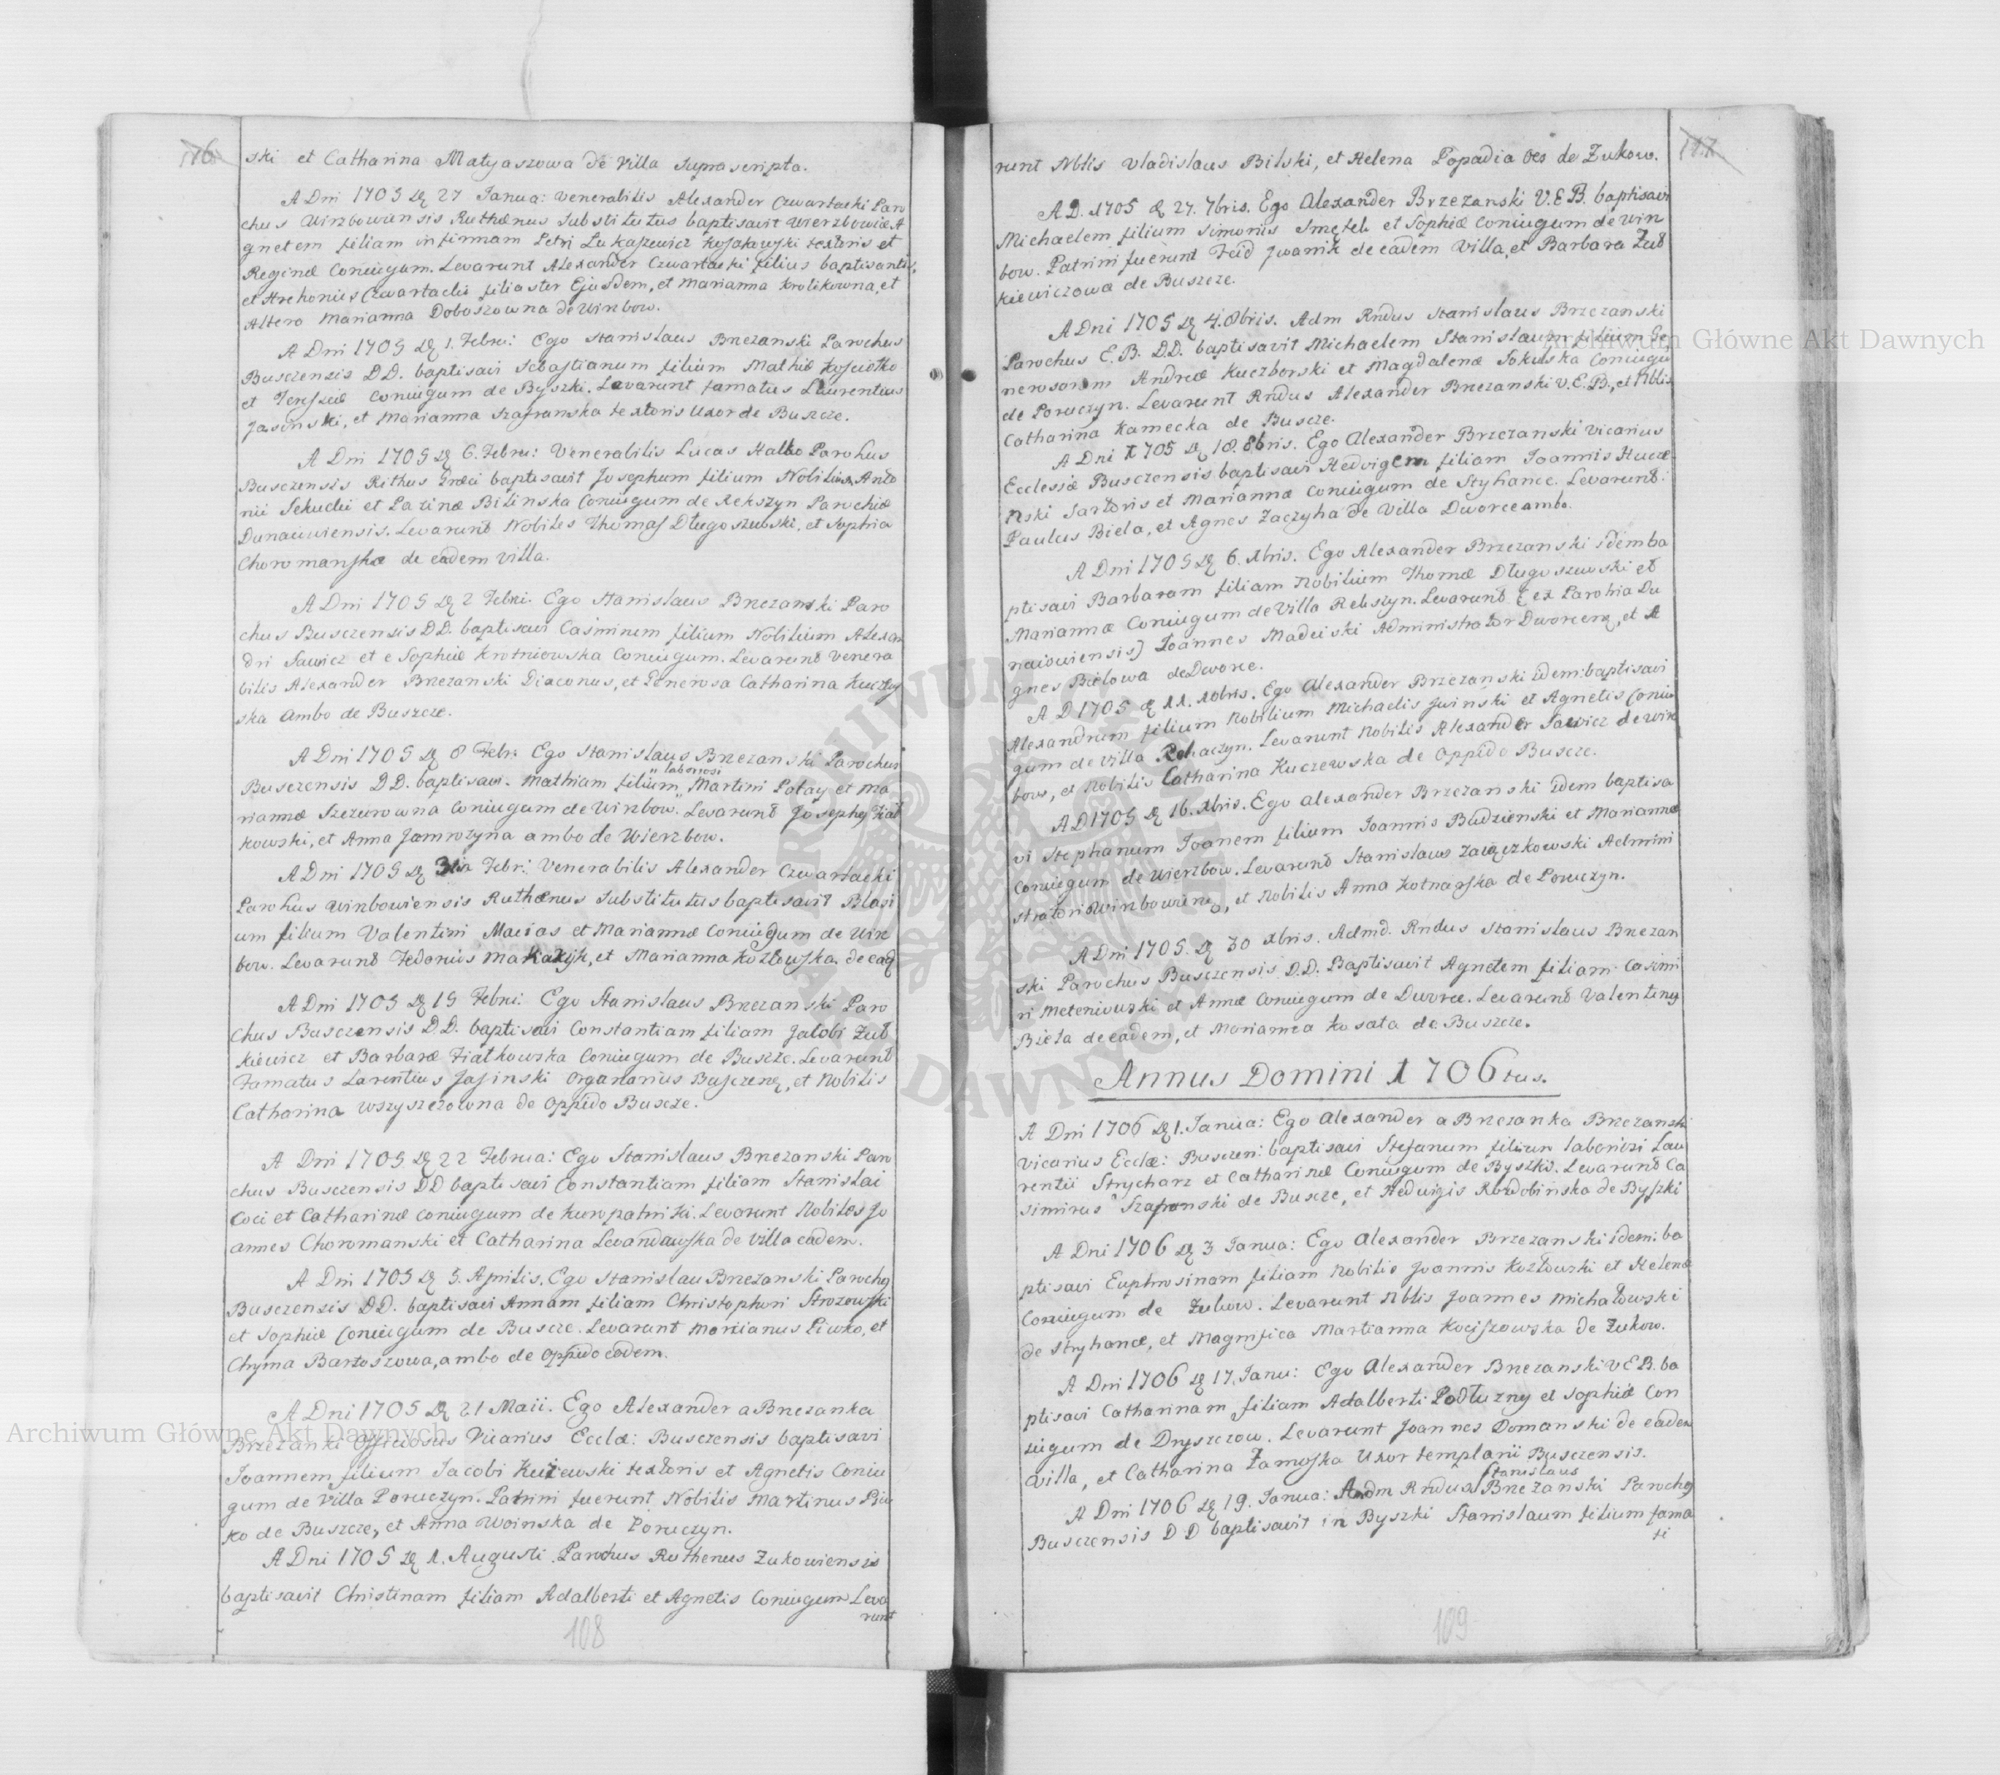 176
ski et Catharina Matyaszowa de Villa suprascripta.
A Dni 1705 dę 27 Janua: Venerabilis Alexander Czwartacki Paro
chus Wirzbowiensis Ruthænus Substitutus baptisavit Wierzboviæ A
gnetem filiam infirmam Petri Lukasewicz Kosakowski textoris et
Reginæ Coniugum. Levarunt Alexander Czwartacki filius baptisantis,
et Hrehorius Czwartacki filiaster Ejusdem, et Marianna Krolikowna, et
Altera Marianna Doboszowna de Wirzbow.
A Dni 1705 dę 1. Febru: Ego Stanislaus Brzezanski Parochus
Busczensis D.D. baptisavi Sebastianum filium Mathiæ Kosciołko
et Teressiæ Coniugum de Byszki. Levarunt famatus Laurentius
Jasinski, et Marianna Szafranska textoris Uxor de Buszcze.
A Dni 1705 dę 6. Febru: Venerabilis Lucas Halko Parohus
Busczensis Rithus Græci baptisavit Josephum filium Nobilium Anto
nii Sekucki et Parinæ Bilinska Coniugum de Rekszyn Parochiæ
Dunaiuwiensis. Levarunt Nobiles Thomas Dlugoszewski, et Sophia
Choromanska de eadem villa.
A Dni 1705 dę 2 Febri. Ego Stanislaus Brzezanski Paro
chus Busczensis D.D. baptisavi Casimirum filium Nobilium Alexan
dri Sawicz et e Sophiæ Krotniowska Coniugum. Levarunt Venera
bilis Alexander Brzezanski Diaconus, et Generosa Catharina Kuczbor
ska ambo de Buszcze.
A Dni 1705 dę 8 Febr: Ego Stanislaus Brzezanski Parochus
Busczensis D.D. baptisavi Mathiam filium „ laboriosi „ Martini Patay et Ma
riannæ Szczurowna Coniugum de Wirzbow. Levarunt Josephus Fiał
kowski, et Anna Jamrozyna ambo de Wierzbow.
A Dni 1705 dę 3tia Febr: Venerabilis Alexander Czwartacki
Parohus Wirzbowiensis Ruthænus Substitutus baptisavit Blasi
um filium Valentini Macias et Mariannæ Coniugum de Wirz
bow. Levarunt Fedorius Makarzyk, et Marianna Kozlowska de ead
A Dni 1705 dę 15 Febru: Ego Stanislaus Brzezanski Paro
chus Busczensis D.D. baptisavi Constantiam filiam Jacobi Zub
kiewicz et Barbaræ Fiatkowska Coniugum de Buszcze. Levarunt
Famatus Larentius Jasinski Organarius Busczens, et Nobilis
Catharina Wszyszczowna de Oppido Buscze.
A Dni 1705 dę 22 Februa: Ego Stanislaus Brzezanski Paro
chus Busczensis D D baptisavi Constantiam filiam Stanislai
Coci et Catharinæ Coniugum de Kuropatniki. Levarunt Nobiles Jo
annes Choromanski et Catharina Levandowska de villa eadem.
A Dni 1705 dę 5. Aprilis. Ego Stanislau Brzezanski Parochus
Busczensis D.D. baptisavi Annam filiam Christophori Strozowski
et Sophiæ Coniugum de Buscze. Levarunt Marcianus Piwko, et
Chyma Bartoszowa, ambo de Oppido eodem.
A Dni 1705 dę 21 Maii. Ego Alexander a Brzezanka
Brzezanki Officiosus Vicarius Ecclæ: Busczensis baptisavi
Joannem filium Jacobi Kuzewski textoris et Agnetis Coniu
gum de Villa Poruczyn. Patrini fuerunt Nobilis Martinus Piw
ko de Buszcze, et Anna Woinska de Poruczyn.
A Dni 1705 dę 1. Augusti. Parochus Ruthenus Zukowiensis
baptisavit Christinam filiam Adalberti et Agnetis Coniugum Leva
runt
108
177
runt Nblis Vladislaus Bilski, et Helena Popadia Oes de Zukow.
A D. 1705 d 27. 7bris. Ego Alexander Brzezanski V.E.B. baptisavi
Michaelem filium Simonis Smętek et Sophiæ Coniugum de Wirz
bow. Patrini fuerunt Fed Jwanik de eadem Villa, et Barbara Zub
kiewiczowa de Buszcze.
A Dni 1705 dę 4. 8bris. Adm Rndus Stanislaus Brzezanski
Parochus E.B. D.D. baptisavit Michaelem Stanislaum filium Ge
nerosorum Andreæ Kuczborski et Magdalenæ Sokulska Coniugu
de Poruczyn. Levarunt Rndus Alexander Brzezanski V.E.B., et Nblis
Catharina Kamecka de Buscze.
A Dni 1705 dę 18. 8bris. Ego Alexander Brzezanski Vicarius
Ecclesiæ Busczensis baptisavi Hedvigem filiam Joannis Hucz
inski Sartoris et Mariannæ Coniugum de Styhance. Levarunt
Paulus Biela, et Agnes Zaczyha de Villa Dworce ambo.
A Dni 1705 dę 6. Xbris. Ego Alexander Brzezanski idem ba
ptisavi Barbaram filiam Nobilium Thomæ Dlugoszewski et
Mariannæ Coniugum de Villa Rekszyn. Levarunt (ex Parohia Du
naiowiensis) Joannes Madeiski Administrator Dworcens, et A
gnes Bielowa de Dworce.
A D 1705 d 11. Xbris. Ego Alexander Brzezanski idem: baptisavi
Alexandrum filium Nobilium Michaelis Jwinski et Agnetis Coniu
gum de Villa Rohaczyn. Levarunt Nobilis Alexander Sawicz de Wirz
bow, et Nobilis Catharina Kuczewska de Oppido Buscze.
A D 1705 dę 16. Xbris. Ego Alexander Brzezanski Idem baptisa
vi Stephanum Joanem filium Joannis Budzienski et Mariannæ
Coniugum de Wierzbow. Levarunt Stanislaus Zaiączkowski Admini
strator Wirzbowiens, et Nobilis Anna Kotnarska de Poruczyn.
A Dni 1705. dę 30 Xbris. Admd. Rndus Stanislaus Brzezan
ski Parochus Busczensis D.D. Baptisavit Agnetem filiam Casimi
ri Meteniwski et Annæ Coniugum de Dworce. Levarunt Valentinus
Bieta de eadem, et Marianna Kosata de Buszcze.
Annus Domini 1706tus.
A Dni 1706 dę 1. Janua: Ego Alexander a Brzezanka Brzezanski
Vicarius Ecclæ: Buszcen: baptisavi Stefanum filium laboriosi Lau
rentii Strycharz et Catharinæ Coniugum de Byszki. Levarunt Ca
simirus Szafranski de Buscze, et Hedvigis Rozdobinska de Byszki
A Dni 1706 dę 3 Janua: Ego Alexander Brzezanski idem: ba
ptisavi Euphrosinam filiam Nobilis Joannis Kozłowski et Helenæ
Coniugum de Zukow. Levarunt Nblis Joannes Michałowski
de Stryhance, et Magnifica Martianna Kociszowska de Zukow.
A Dni 1706 dę 17. Janu: Ego Alexander Brzezanski V E B. ba
ptisavi Catharinam filiam Adalberti Podłuzny et Sophiæ Con
iugum de Dryszczow. Levarunt Joannes Domanski de eadem
Villa, et Catharina Zamoska Uxor templarii Busczensis.
A Dni 1706 dę 19. Janua: Andm Rndus Stanislaus Brzezanski Parochus
Busczensis D D baptisavit in Byszki Stanislaum filium fama
ti
109
Archiwum Główne Akt Dawnych
Archiwum Główne Akt Dawnych
ARCHIWUM GŁÓWNE AKT DAWNYCH